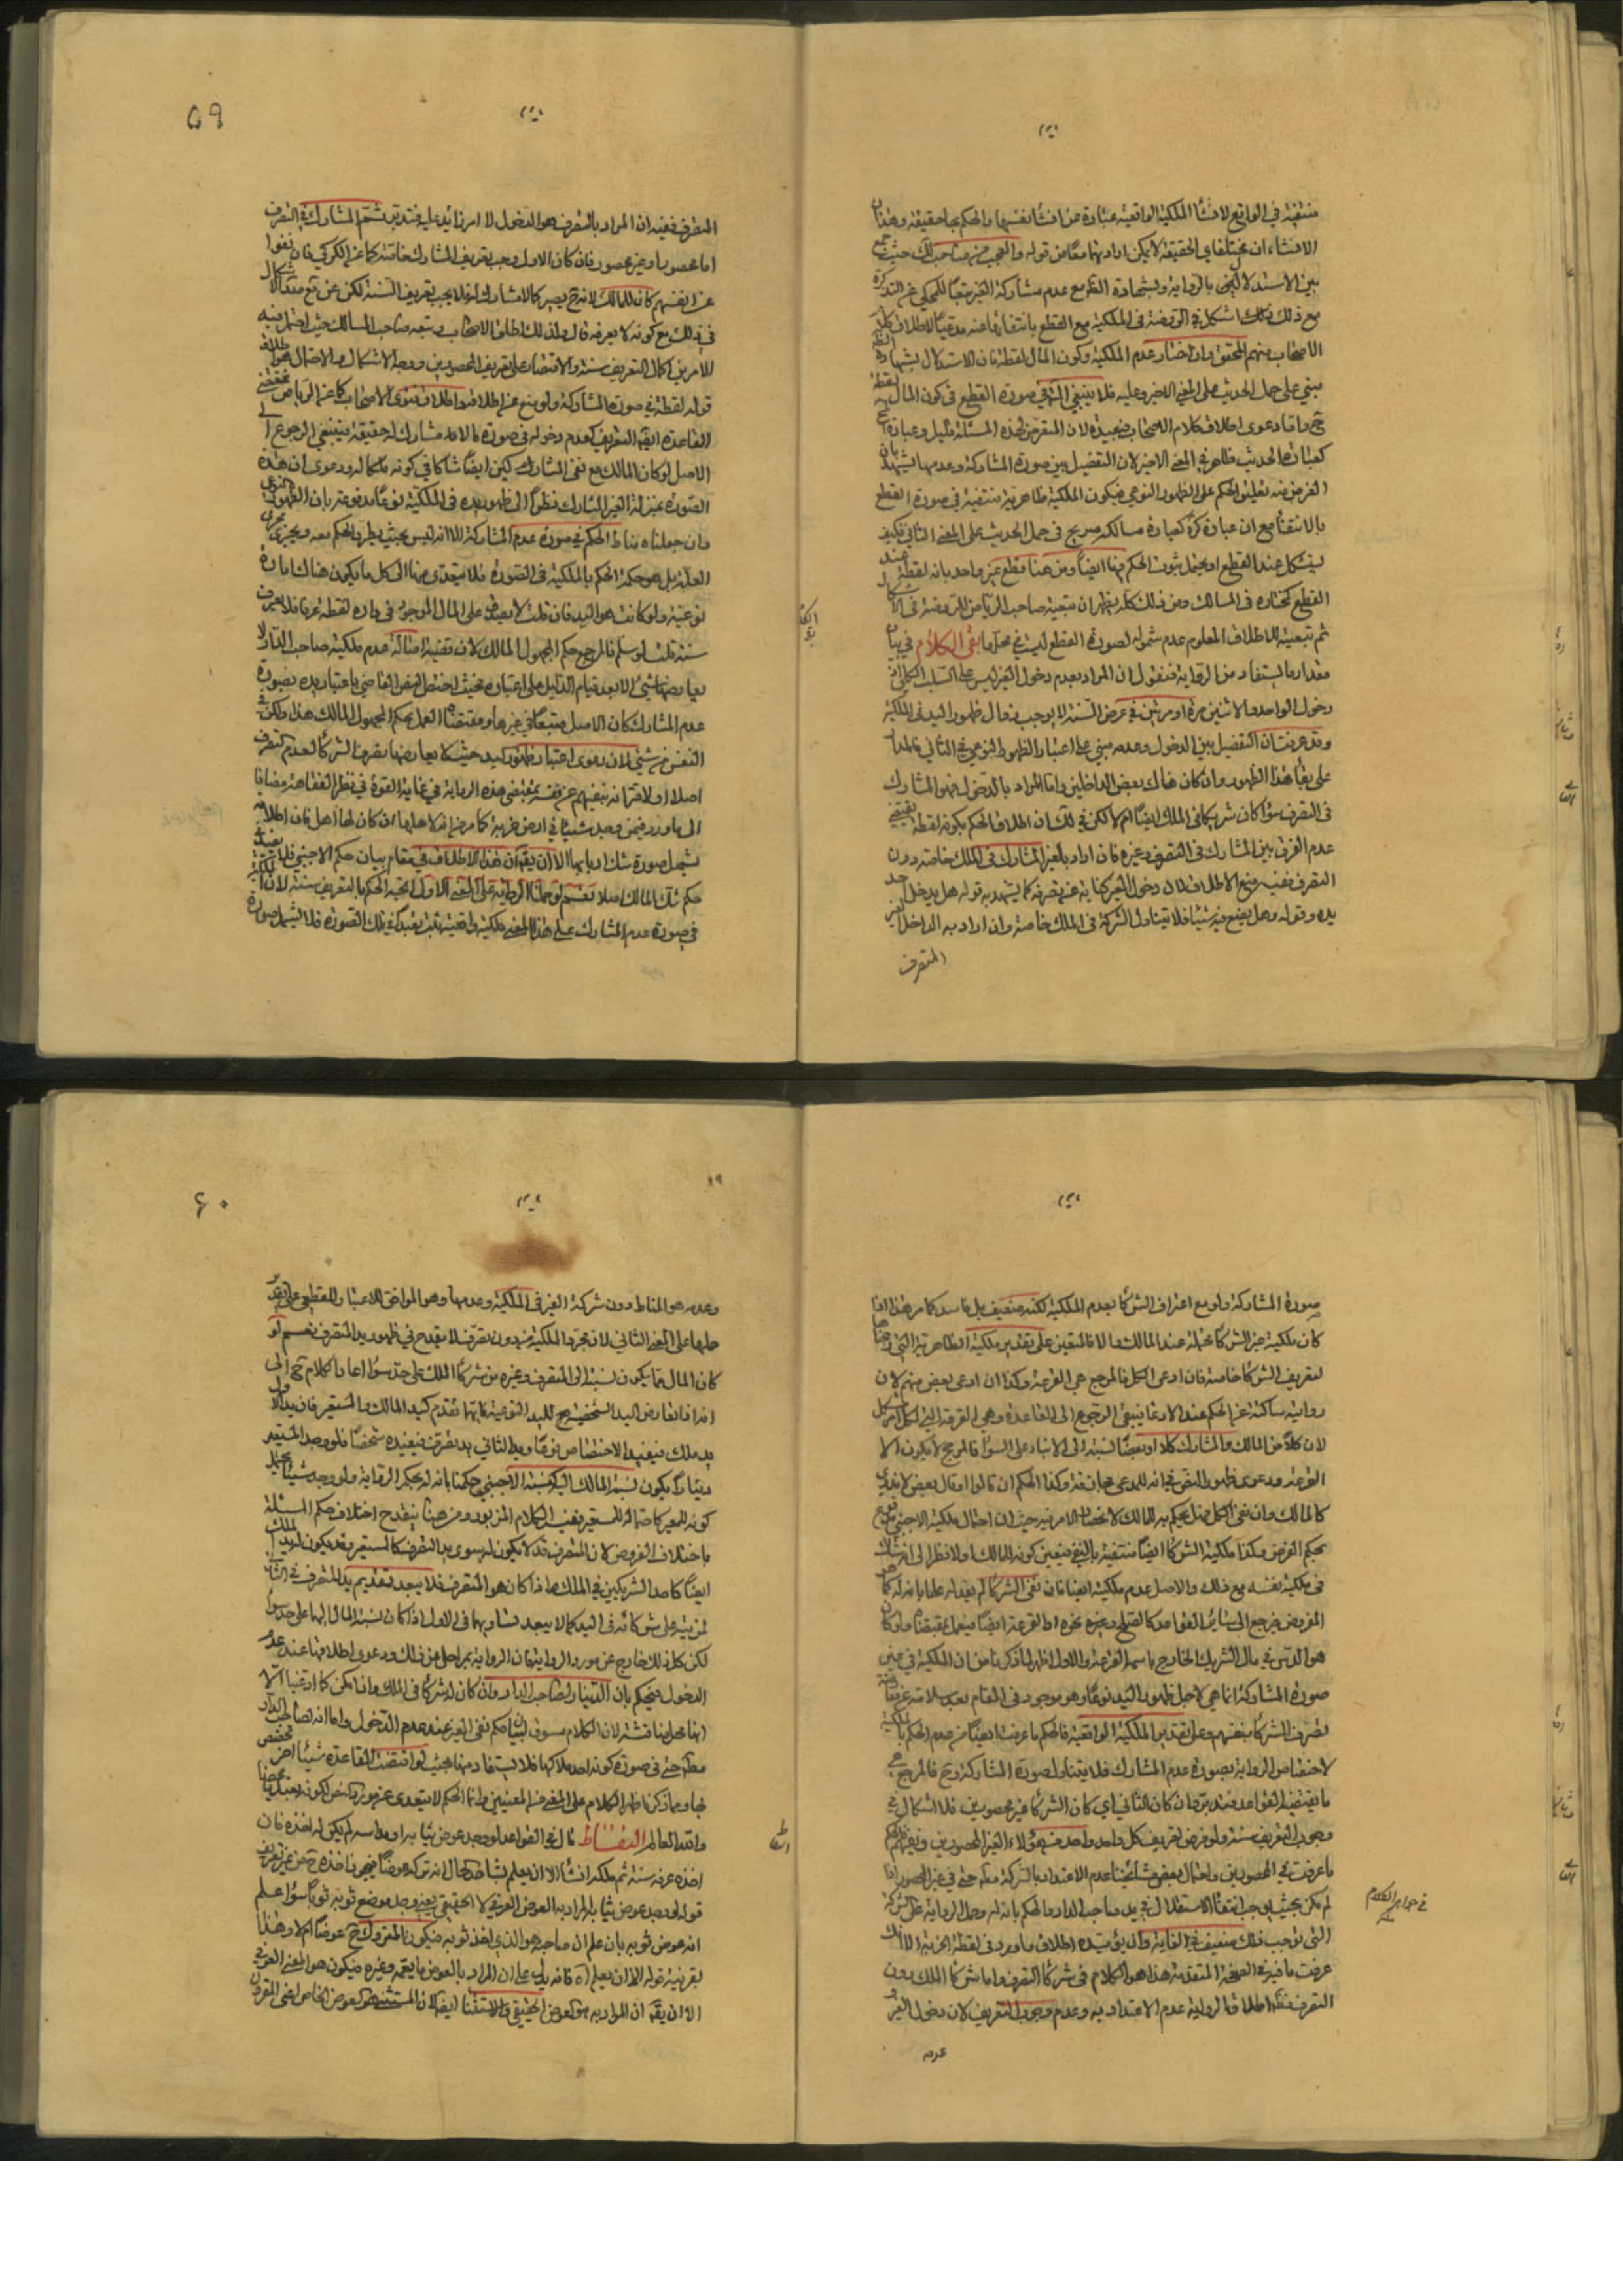 منتفية في الواقع لا انشأ الملكية الواقعية عبارة عن انشأ نفسها والحكم بها حقيقة وهذان
الانشاءان مختلفاي الحقيقة لا يمكن ارادتهما معًا من قوله والعجب من صاحب لك حيث جمع
بين الاستدلال بالرواية وبشهادة الظ مع عدم مشاركة الغير تبعًا للمحكي عن التذكرة
مع ذلك اشكل في الروضة في الملكية مع القطع بانتفائها عنه مدعيًا لاطلاق كلام
الاصحاب منهم المحقق وان اختار عدم الملكية وكون المال لقطة فان الاستدلال بشهادة الظ
مبني على حمل الحديث على المعنى الاخير وعليه فلا ينبغي في صورة القطع في كون المال لقطة
ح واما دعوى اطلاق كلام الاصحاب فبعيدة لان المتعرض لهذه المسئلة قليل وعباراتهم
كعبارة الحديث ظاهر في المعنى الاخير لان التفصيل بين صورة المشاركة وعدمها يشهد بان
الغرض منه تعليق الحكم على الظهور النوعي فيكون الملكية ظاهرية منتفية في صورة القطع
بالانتفأ مع ان عبارة كرة كعبارة مسالكه صريح في حمل الحديث على المعنى الثاني فكيف
يشكل عند القطع او يحتمل ثبوت الحكم هنا ايضًا ومن هنا قطع غير واحد بانه لقطة عند
القطع كمختاره في المسالك ومن ذلك كله يظهر ان تبعية صاحب الرياض للروضة في الاشكال
ثم تبعيته للاطلاق المعلوم عدم شموله لصورة القطع ليست في محلها بقى الكلام في بيان
مقدار ما يستفاد من الرواية فنقول ان المراد بعدم دخول الغير ليس على السلب الكلي اذ
دخول الواحد والاثنين مرة او مرتين في عرض السنة لا يوجب زوال ظهور اليد في الملكية
وقد عرفت ان التفصيل بين الدخول وعدمه مبني على اعتبار الظهور النوعي في الثاني فالمدار
على بقأ هذا الظهور وان كان هناك بعض الداخلين واما المراد بالدخول فهو المشارك
في التصرف سوأ كان شريكا في الملك ايضًا ام لا لكن في لك ان اطلاق الحكم بكونه لقطة يقتضي
عدم الفرق بين المشارك في التصرف وغيره فان اراد بالغير المشارك في الملك خاصة دون
التصرف ففيه منع الاطلاق لان دخول الغير كناية عن تصرفه كما يشهد به قوله هل يدخل احد
يده وقوله وهل يضع فيه شيئا فلا يتناول الشركة في الملك خاصة وان اراد به الداخل الغير
المتصرف
٥٩
المتصرف ففيه ان المراد بالتصرف هو الدخول لا امر زايد عليه فتدبر ثم المشارك في التصرف
اما محصور او غير محصور فان كان الاول وجب تعريف المشارك خاصة كما عن الكركي فان نفوا
عن انفسهم كان للمالك لانه ح يصير كالامشارك له فلا يجب تعريف السنة لكن عن مع صد الاشكال
في ذلك مع كونه لا يعرفه قال ولذلك اطلق الاصحاب وتبعه صاحب المسالك حيث احتمل فيه
الامرين اكمال التعريف سنة والاقتصار على تعريف المحصورين ووجه الاشكال والاحتمال هو اطلاق
قوله لقطة في صورة المشاركة ولو منع عن اطلاقه واطلاق فتوى الاصحاب كما عن الرياض فمقتضى
القاعدة ايضًا التعريف كعدم دخوله في صورة ما لا مشارك له حقيقة فينبغي الرجوع الى
الاصل لو كان المالك مع نفي المشارك لكن ايضًا شاكا في كونه ملكا له ودعوى ان هذه
الصورة بمنزلة الغير المشارك نظرًا الى ظهور يده في الملكية نوعًا مدفوعة بان الظهور النوعي
وان جعلناه مناط الحكم في صورة عدم المشاركة الا انه ليس بحيث يطرد الحكم معه ويجري مجرى
العلة بل هو حكمة الحكم بالملكية في الصورة فلا يتعدى منها الى كل ما يكون هناك امارة
نوعية ولو كانت هو اليد فان قلت لا يصدق على المال الموجود في داره لقطة عرفا فلا يعرف
سنة قلت لو سلم فالمرجع حكم المجهول المالك لان قضية اصالة عدم ملكية صاحب الدار لا
يعارضها شئ الا بعد قيام الدليل على اعتبار يده فحيث اختص النص القاضي باعتبار يده بصورة
عدم المشارك كان الاصل متبعًا في غيرها ومقتضاه العمل بحكم المجهول المالك هذا ولكن في
النفس من شئ لان دعوى اعتبار ظهور اليد حيث لا يعارضها تصرف الشركأ لعدم تصرف
اصلا او لاقترانه بنفيهم عن نفسه بمقتضى هذه الرواية في غاية القوة في نظر الفقاهة مضافا
الى ما ورد فيمن وجد شيئا في ارض خربة كما مر انه لاهلها ان كان لها اهل فان اطلاقه
يشمل صورة شك اربابها الا ان يقال ان هذا الاطلاق في مقام بيان حكم الاجنبي فلا يفيد
حكم شك المالك اصلا نعم لو حملنا الرواية على المعنى الاول اتجه الحكم بالتعريف سنة لان
في صورة عدم المشارك على هذا المعنى ملكية واقعية ثبت تعبدًا في تلك الصورة فلا يشمل صورة
صورة المشاركة ولو مع اعتراف الشركأ بعدم الملكية لكنه ضعيف بل فاسد كما مر هذا اذا
كان ملكية غير الشركأ محتملة عند المالك والا فالمتعين على تقدير ملكية الظاهرية التي رجحناها
تعريف الشركأ خاصة فان ادعى الكل فالمرجع هي القرعة وكذا ان ادعى بعض منهم لان
روايته ساكتة عن الحكم عند الادعا فينبغي الرجوع الى القاعدة وهي القرعة التي لكل امر مشكل
لان كلا من المالك والمشارك كلا او بعضًا نسبته الى الانتساب على السوأ فالمرجح لا يكون الا
القرعة ودعوى ظهور النص في انه للمدعى مجازفة وكذا الحكم ان قالوا او قال بعض لا ندري
كالمالك وان نفى الكل فهل يحكم به للمالك لانحصار الامر فيه حيث ان احتمال ملكية الاجنبي مدفوع
بحكم الفرض وكذا ملكية الشركأ ايضًا منتفية بالنفي فيتعين كونه للمالك اولا نظرًا الى انه شاك
في ملكية نفسه مع ذلك والاصل عدم ملكيته ايضا فان نفى الشركأ لم يفد له علما بانه له كما هو
المفروض فيرجع الى سائر القواعد كالصلح وغيره نحوه او القرعة ايضًا فيعمل بمقتضاه ولو كان
هو الدس في مال الشريك الخارج باسمه القرعة والاول اظهر لما ذكرنا من ان الملكية في غير
صورة المشاركة انما هي لاجل ظهور اليد نوعًا وهو موجود في المقام بعد سلامته عن معارضة
تصرف الشركأ بنفيهم وعلى تقدير الملكية الواقعية فالحكم ما عرفت ايضًا من عدم الحكم بالملكية
لاختصاص الرواية بصورة عدم المشارك فلا يتناول صورة المشاركة وح فالمرجع هي
ما يقتضيه القواعد فتدبر وان كان الثاني اي كان الشركأ غير محصورين فلا اشكال في
وجوب التعريف سنة ولو فرض تعريف كل واحد واحد من هؤلاء الغير المحصورين ونفيهم فالحكم
ما عرفت في المحصورين واحتمال بعض مشائخنا عدم الاعتداد بالشركة مطلقا حتى في غير المحصور اذا
لم يكن بحيث يوجب انتفأ الاستقلال في يد صاحب الدار والحكم بانه له وحمل الرواية على الشركة
التي توجب ذلك ضعيف في الغاية وان يؤيده اطلاق ما ورد في لقطة الخربة الا انك
عرفت ما فيه في الصفحة المتقدمة هذا هو الكلام في شركأ التصرف واما شركأ الملك دون
التصرف فظ اطلاق الرواية عدم الاعتداد به وعدم وجوب التعريف لان دخول الغير
عدمه
في جواهر الكلام
٦٠
وعدمه هو المناط دون شركة الغير في الملكية وعدمها وهو الموافق للاعتبار القطعي على تقدير
حملها على المعنى الثاني لان مجرد الملكية من دون تصرف لا يقدح في ظهور يد المتصرف نعم لو
كان المال مما يكون نسبته الى المتصرف وغيره من شركأ الملك على حد سوأ اعاد الكلام ح الى
انه اذا تعارض اليد الشخصية مع اليد النوعية فايتهما تقدم كيد المالك والمستعير فان يد الاول
يد ملك فيفيد الاختصاص نوعًا ويد الثاني يد تصرف فيفيده شخصًا فلو وجد المستعير
دينارًا يكون نسبة المالك اليه كنسبة الاجنبي حكمنا بانه له بحكم الرواية ولو وجد شيئا يحتمل
كونه للمعير كاحتماله للمستعير ففيه الكلام المزبور ومن هنا ينقدح اختلاف حكم المسئلة
باختلاف الفروض لان المتصرف قد لا يكون له سوى يد التصرف كالمستعير وقد يكون له يد الملك
ايضًا كاحد الشريكين في الملك اذا كان هو المتصرف فلا يبعد تقديم يد المتصرف في الثاني
لمزيته على شركائه في اليد كما لا يبعد تساويهما في الاول اذا كان نسبة المال اليهما على حد سوأ
لكن كل ذلك خارج عن مورد الرواية فان الرواية بمراحل عن ذلك ودعوى اطلاقها عند عدم
الدخول فيحكم بان الدينار لصاحب الدار وان كان له شركأ في الملك وان امكن كما ادعينا الا
انها محل مناقشة لان الكلام مسوق لبيان حكم نفي الغير عند عدم الدخول واما انه لصاحب الدار
مط حتى في صورة كونه احد ملاكها فلا يستفاد منها بحيث لو اقتضت القاعدة شيئا اخر تخصص
بها ومما ذكرنا ظهر الكلام على المعنى من المعنيين وان الحكم لا يتعدى عن مورد النص لكونه تعبديا محضا
والله العالم التقاط قال في القواعد لو وجد عوض ثيابه او مداسه لم يكن له اخذه فان
اخذه عرفه سنة ثم ملكه انشأ الا ان يعلم بشاهد الحال انه تركه عوضًا فيجوز اخذه ح من غير تعريف
قوله لو وجد عوض ثيابه المراد به العوض العرفي لا الحقيقي يعني وجد موضع ثوبه ثوبًا سوأ علم
انه عوض ثوبه بان علم ان صاحبه هو الذي اخذ ثوبه فيكون المتروك ح عوضًا ام لا وهذا
بقرينة قوله الا ان يعلم آه فانه يدل على ان المراد بالعوض ما يعمه وغيره فيكون هو المعنى العرفي
الا ان يقال ان المراد به هو العوض الحقيقي والاستثنا ايضا لان المستثنى هو العوض الخاص اعني المقرون